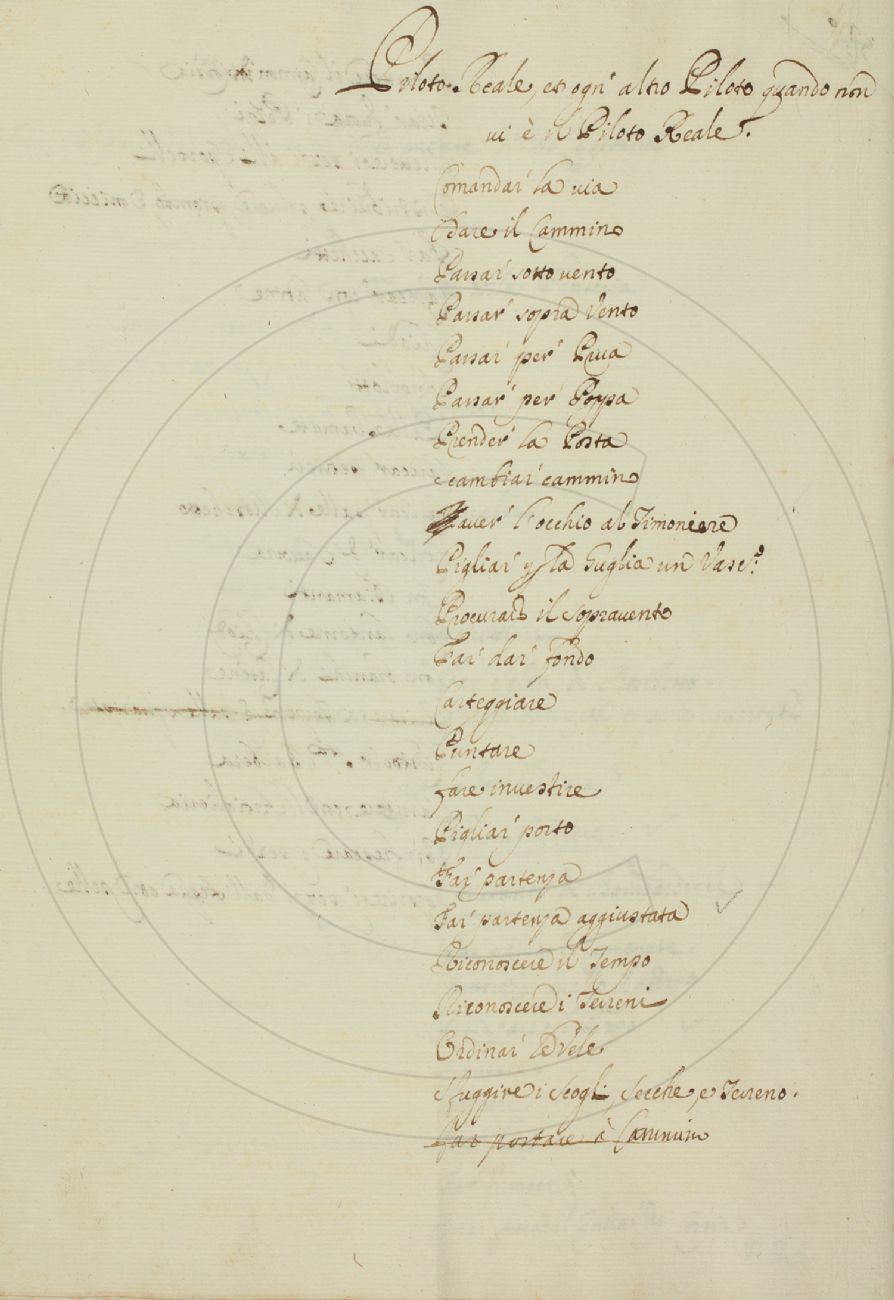 Piloto Reale, et ogn' altro Piloto quando non
vi è il Piloto Reale.
Comandar' la via
Dare il Cammino
Passar' sotto vento
Passar' sopra Vento
Passar' per' Prua
Passar' per' Poppa
Prender' la Posta
Scambiar' cammino
haver' l'occhio al Timoniere
Pigliar' p la Guglia un Vasc.º
Procurare il sopravento
Far' dar' fondo
Carteggiare
Puntare
fare investire
Pigliar' porto
Far' partenza
Far' partenza aggiustata
Riconoscere il Tempo
Riconoscere i Terreni
Ordinar' le Vele
Sfuggire i Scogli, Secche, e Terreno.
far portare à Cammin